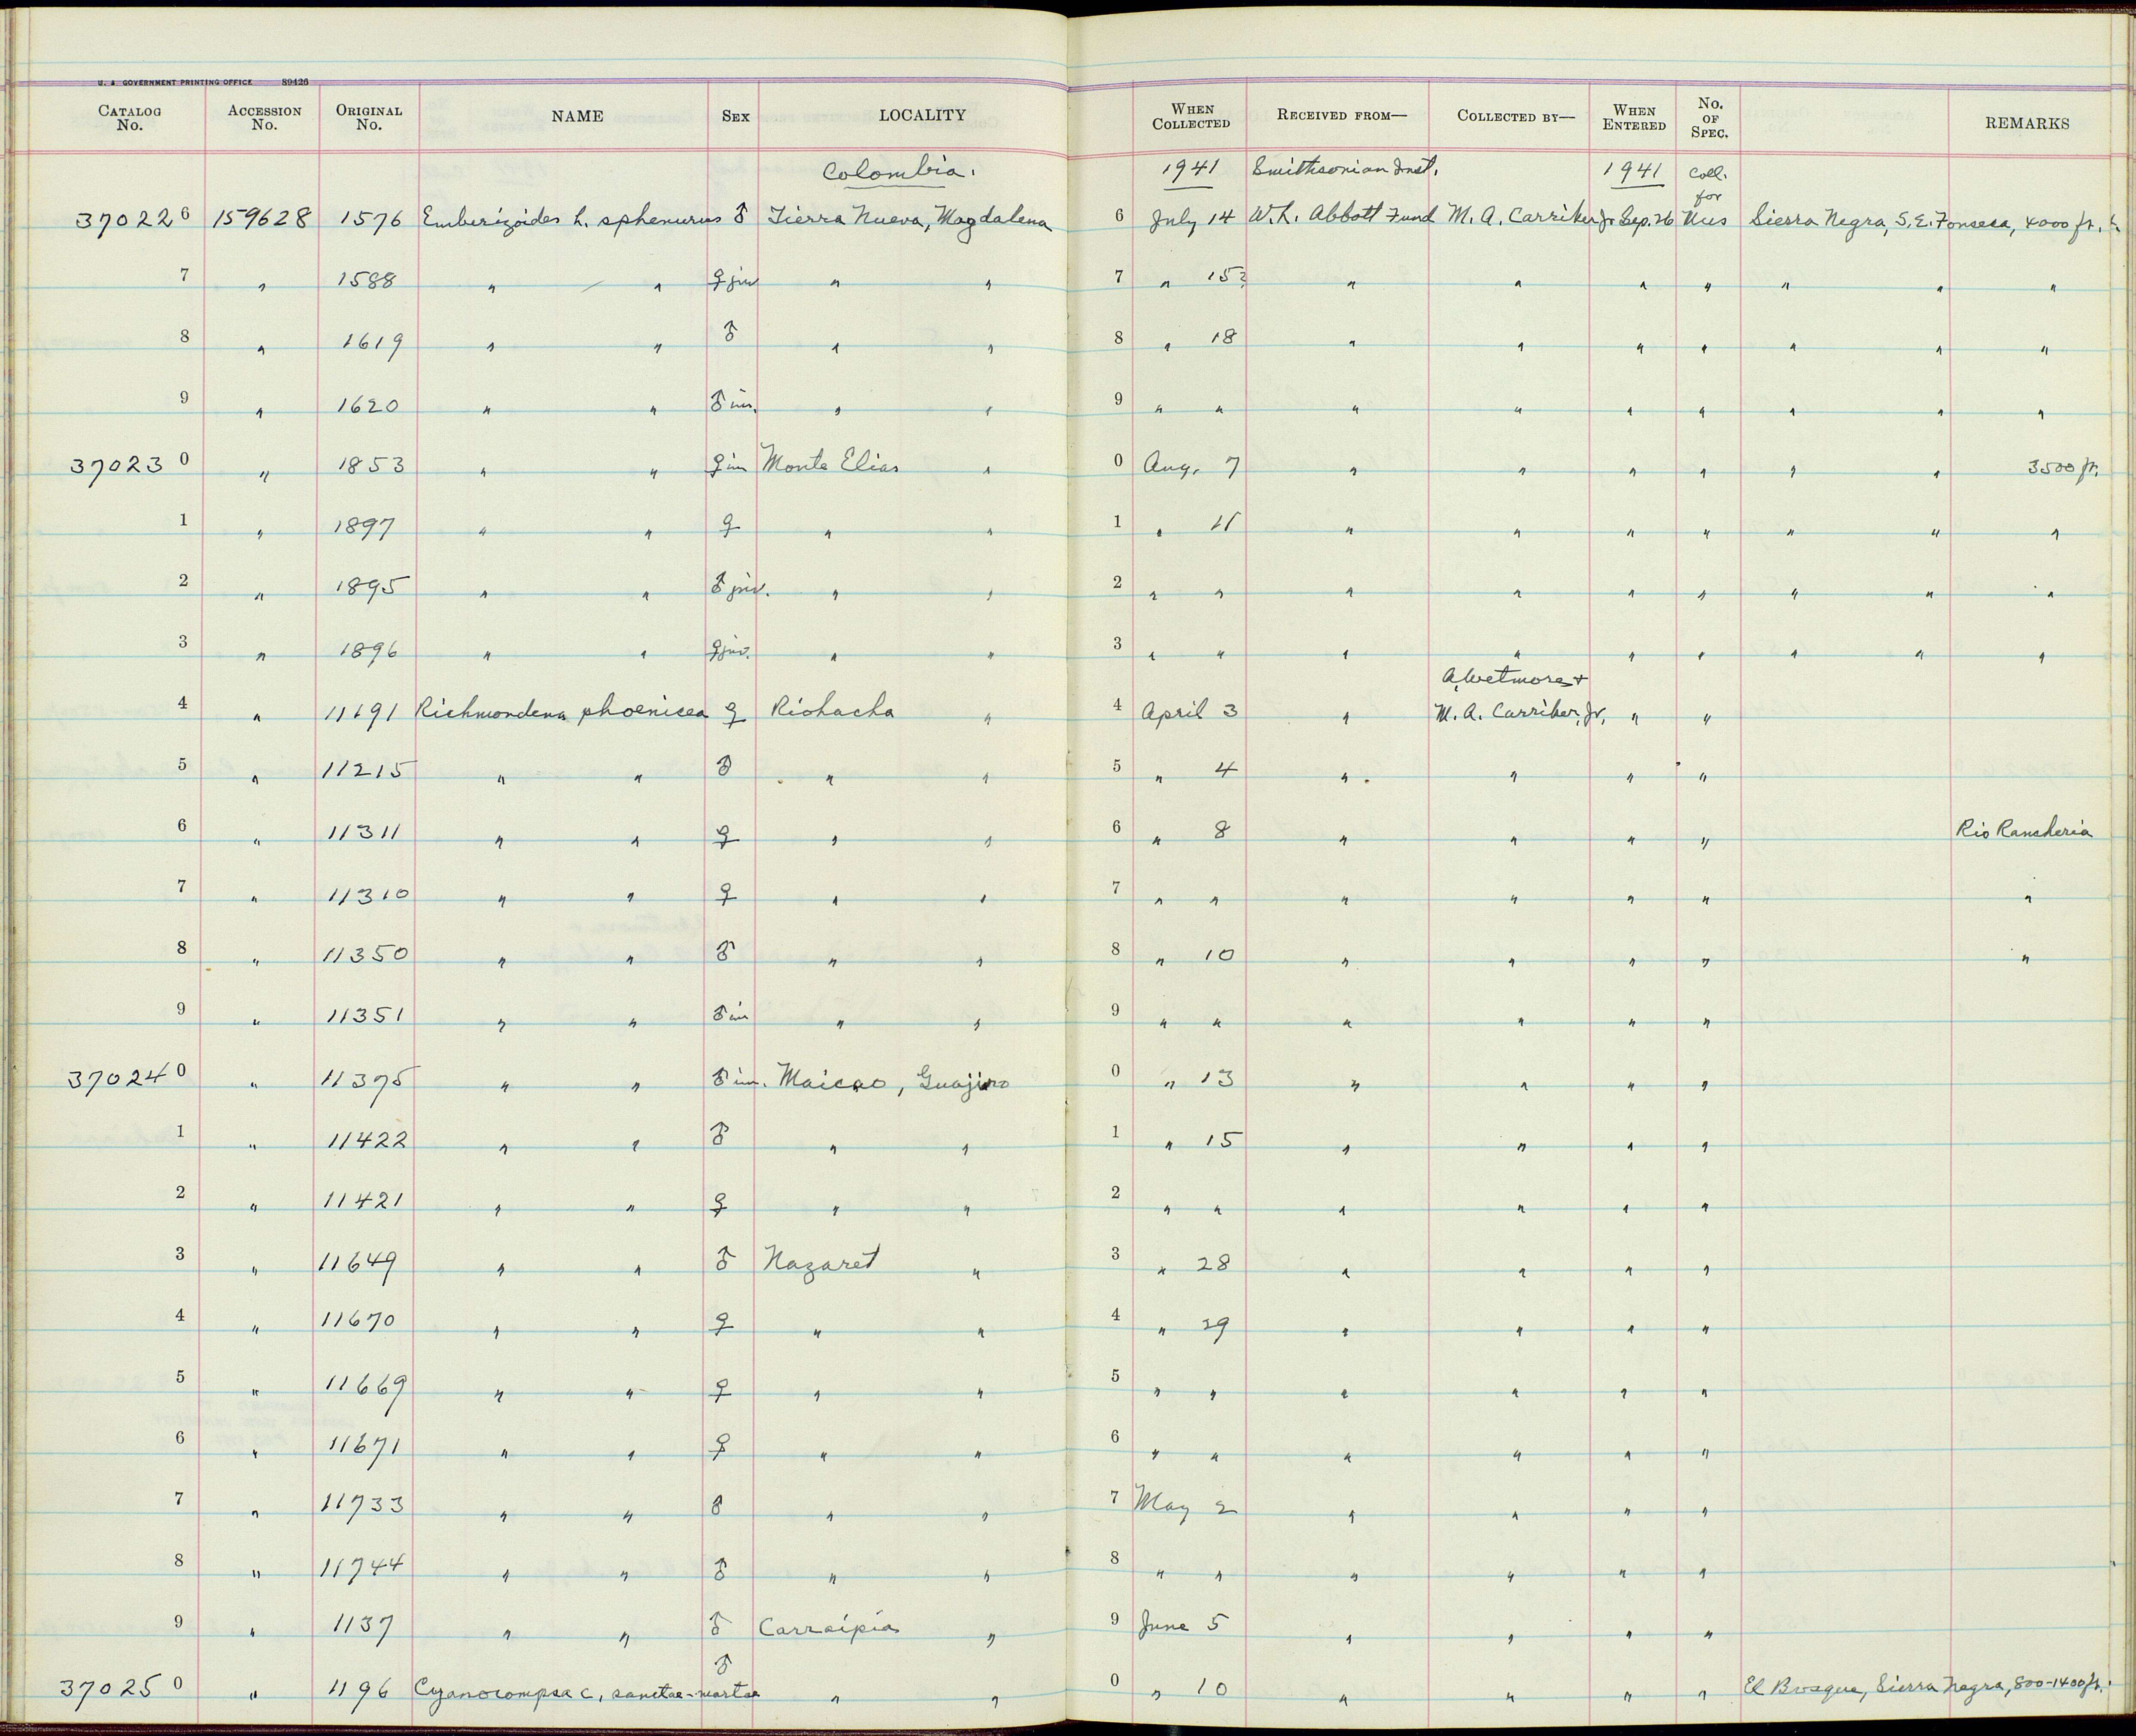 U. S. GOVERNMENT PRINTING OFFICE 89426
CATALOG No. ACCESSION No. ORIGINAL No. NAME SEX LOCALITY WHEN COLLECTED RECEIVED FROM— COLLECTED BY— WHEN ENTERED No. OF SPEC. REMARKS
Colombia. 1941 Smithsonian Inst. 1941 Coll. for
370226 159628 1576 Emberizoides h. sphenurus ♂ Tierra Nueva, Magdalena 6 July 14 W.L. Abbott Fund M. A. Carriker Jr. Sep. 26 Mus Sierra Negra, S.E. Fonseca, 4000 ft.
7 " 1588 " " ♀ juv " " 7 " 15? " " " " " " "
8 " 1619 " " ♂ " " 8 " 18 " " " " " " "
9 " 1620 " " ♂ im. " " 9 " " " " " " " " "
370230 " 1853 " " ♀ im Monte Elias " 0 Aug. 7 " " " " " " 3500 ft.
1 " 1897 " " ♀ " " 1 " 11 " " " " " " "
2 " 1895 " " ♂ juv. " " 2 " " " " " " " " "
3 " 1896 " " ♀ juv. " " 3 " " " " " " " " "
A. Wetmore +
4 " 11191 Richmondena phoenicea ♀ Riohacha " 4 April 3 " M. A. Carriker, Jr. " "
5 " 11215 " " ♂ " " 5 " 4 " " " "
6 " 11311 " " ♀ " " 6 " 8 " " " " Rio Rancheria
7 " 11310 " " ♀ " " 7 " " " " " " "
8 " 11350 " " ♂ " " 8 " 10 " " " " "
9 " 11351 " " ♂ im " " 9 " " " " " "
370240 " 11375 " " ♂ im. Maicao, Guajira 0 " 13 " " " "
1 " 11422 " " ♂ " " 1 " 15 " " " "
2 " 11421 " " ♀ " " 2 " " " " " "
3 " 11649 " " ♂ Nazaret " 3 " 28 " " " "
4 " 11670 " " ♀ " " 4 " 29 " " " "
5 " 11669 " " ♀ " " 5 " " " " " "
6 " 11671 " " ♀ " " 6 " " " " " "
7 " 11733 " " ♂ " " 7 May 2 " " " "
8 " 11744 " " ♂ " " 8 " " " " " "
9 " 1137 " " ♂ Carraipia " 9 June 5 " " " "
370250 " 1196 Cyanocompsa c. sanctae-martae ♂ " " 0 " 10 " " " " El Bosque, Sierra Negra, 800-1400 ft.